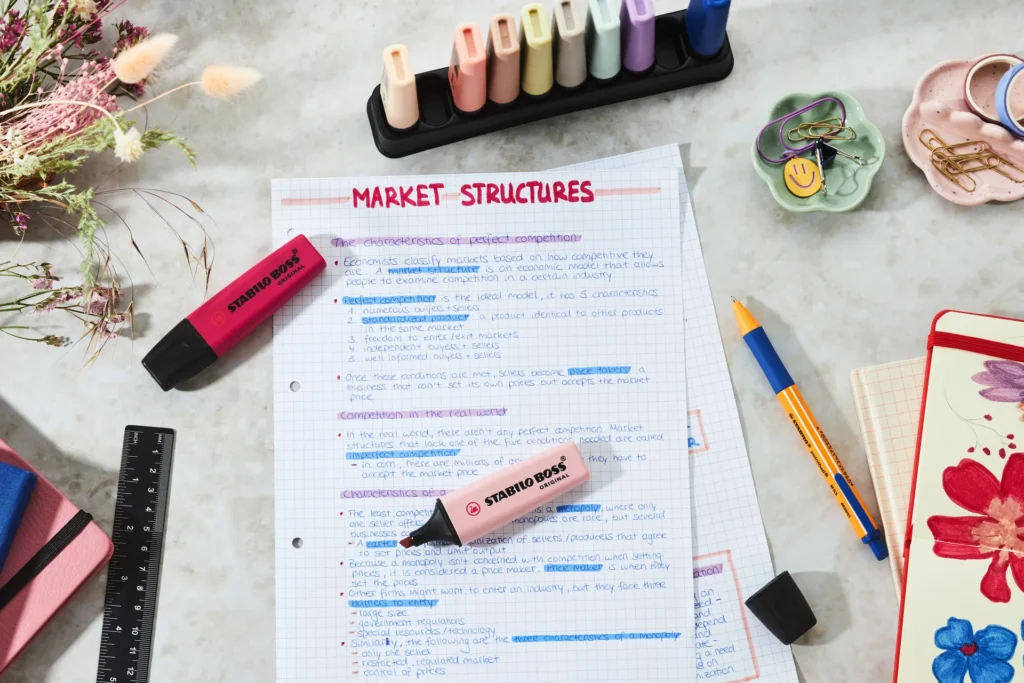 MARKET STRUCTURES
The characteristics of perfect competition
• Economists classify markets based on how competitive they
are. A market structure is an economic model that allows
people to examine competition in a certain industry
• Perfect competition is the ideal model, it has 5 characteristics
1. numerous buyers + sellers
2. standardized product: a product identical to other products
in the same market
3. freedom to enter/exit markets
4. independent buyers + sellers
5. well informed buyers + sellers
• Once these conditions are met, sellers become price takers: a
business that don't set its own prices but accepts the market
price.
Competition in the real world
• In the real world, there aren't any perfect competition. Market
structures that lack one of the five conditions needed are called
imperfect competition
- in corn, there are millions of they have to
accept the market price
Characteristics of a
• The least competit is a monopoly, where only
one seller offers monopolies are rare, but several
business
- A cartel organization of sellers/producers that agree
to set prices and limit output
• Because a monopoly isn't concerned with competition when setting
prices, it is considered a price maker. Price maker is when they
set the prices
• Other firms might want to enter an industry, but they face three
barriers to entry
- large size
- government regulations
- special resources/technology
• Similarly, the following are the more characteristics of a monopoly
- only one seller
- restricted, regulated market
- control of prices
STABILO BOSS
ORIGINAL
STABILO BOSS
ORIGINAL